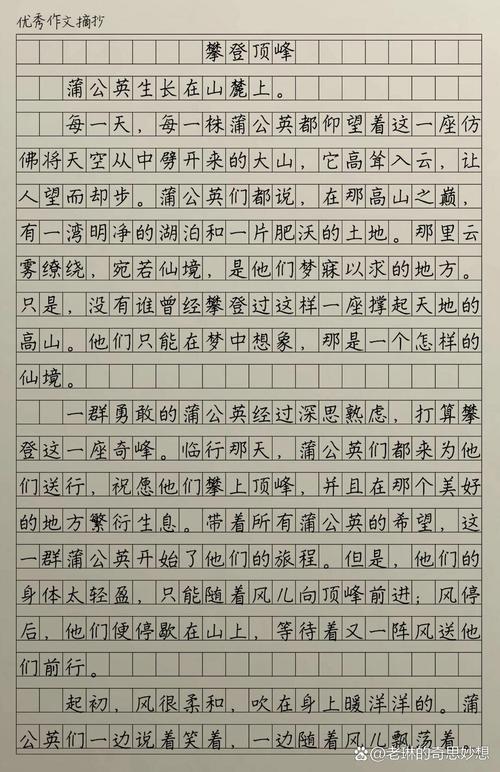 优秀作文摘抄
攀登顶峰
蒲公英生长在山麓上。
每一天，每一株蒲公英都仰望着这一座仿
佛将天空从中劈开来的大山，它高耸入云，让
人望而却步。蒲公英们都说，在那高山之巅，
有一湾明净的湖泊和一片肥沃的土地。那里云
雾缭绕，宛若仙境，是他们梦寐以求的地方。
只是，没有谁曾经攀登过这样一座撑起天地的
高山。他们只能在梦中想象，那是一个怎样的
仙境。
一群勇敢的蒲公英经过深思熟虑，打算攀
登这一座奇峰。临行那天，蒲公英们都来为他
们送行，祝愿他们攀上顶峰，并且在那个美好
的地方繁衍生息。带着所有蒲公英的希望，这
一群蒲公英开始了他们的旅程。但是，他们的
身体太轻盈，只能随着风儿向顶峰前进；风停
后，他们便停歇在山上，等待着又一阵风送他
们前行。
起初，风很柔和，吹在身上暖洋洋的。蒲
公英们一边说着笑着，一边随着风儿飘荡着
@老琳的奇思妙想